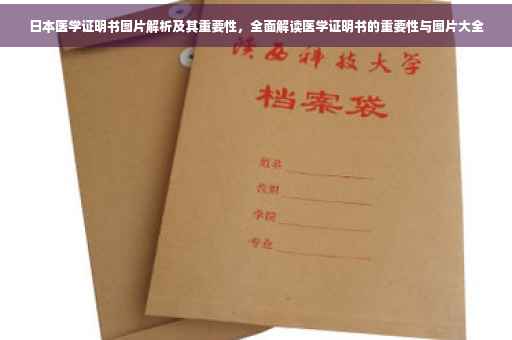 日本医学证明书图片解析及其重要性，全面解读医学证明书的重要性与图片大全
陕西科技大学
档案袋
姓名
学院
专业